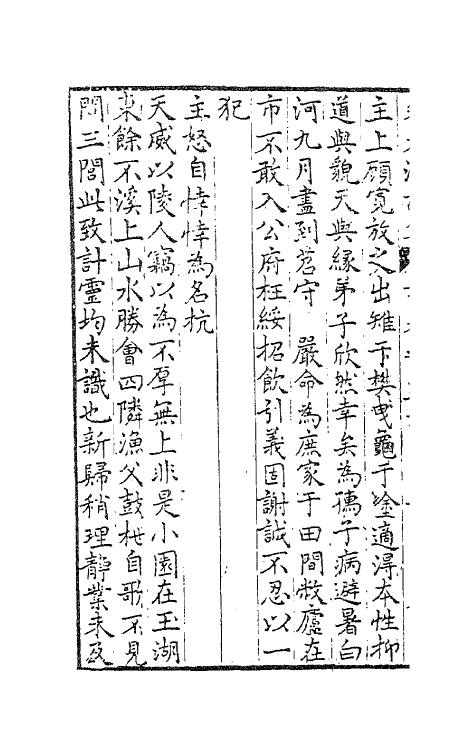 主上願寛放之出雉于樊曳龜于塗適得本性抑
道與貌天與緣弟子欣然幸矣為穗子病避暑白
河九月盡到苕守　嚴命為庶家于田間敝廬在
市不敢入公府枉綏招飲引義固謝誠不忍以一
犯
主怒自悻悻為名抗
天威以陵人竊以為不厚無上非是小園在玉湖
棗餘不溪上山水勝會四隣漁父鼓枻自歌不見
問三閭此致計靈均未識也新歸稍理靜業未及